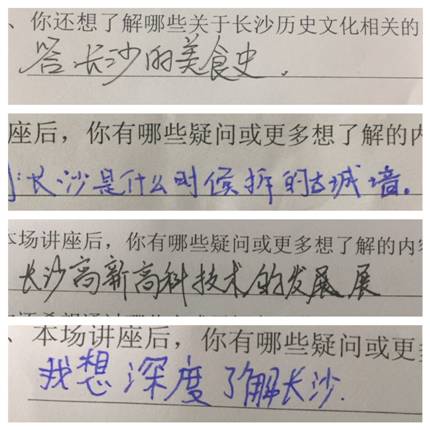 、你还想了解哪些关于长沙历史文化相关的
答 长沙的美食史。
座后，你有哪些疑问或更多想了解的内
长沙是什么时候拆的古城墙。
本场讲座后，你有哪些疑问或更多想了解的内容
长沙高新高科技术的发展 展
、本场讲座后，你有哪些疑问或更
我想深度了解长沙.